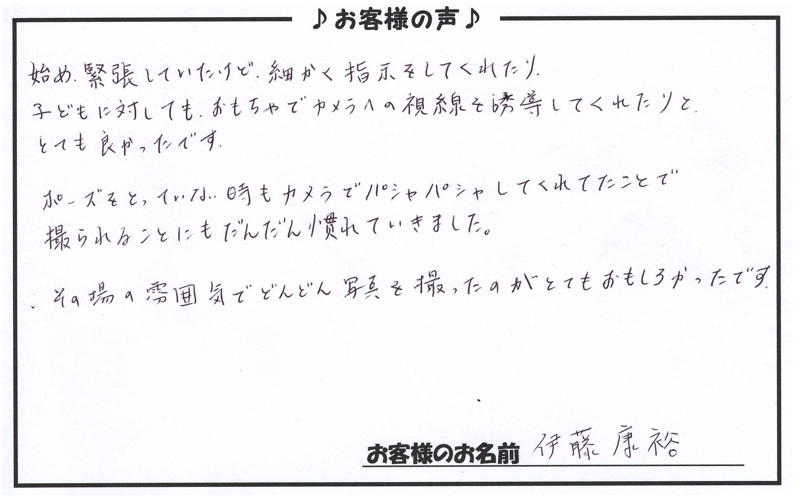 ♪お客様の声♪
始め、緊張していたけど、細かく指示をしてくれたり、
子どもに対しても、おもちゃでカメラへの視線を誘導してくれたりと、
とても良かったです。
ポーズをとっていない時もカメラでパシャパシャしてくれてたことで
撮られることにもだんだん慣れていきました。
、その場の雰囲気でどんどん写真を撮ったのがとてもおもしろかったです。
お客様のお名前 伊藤康裕